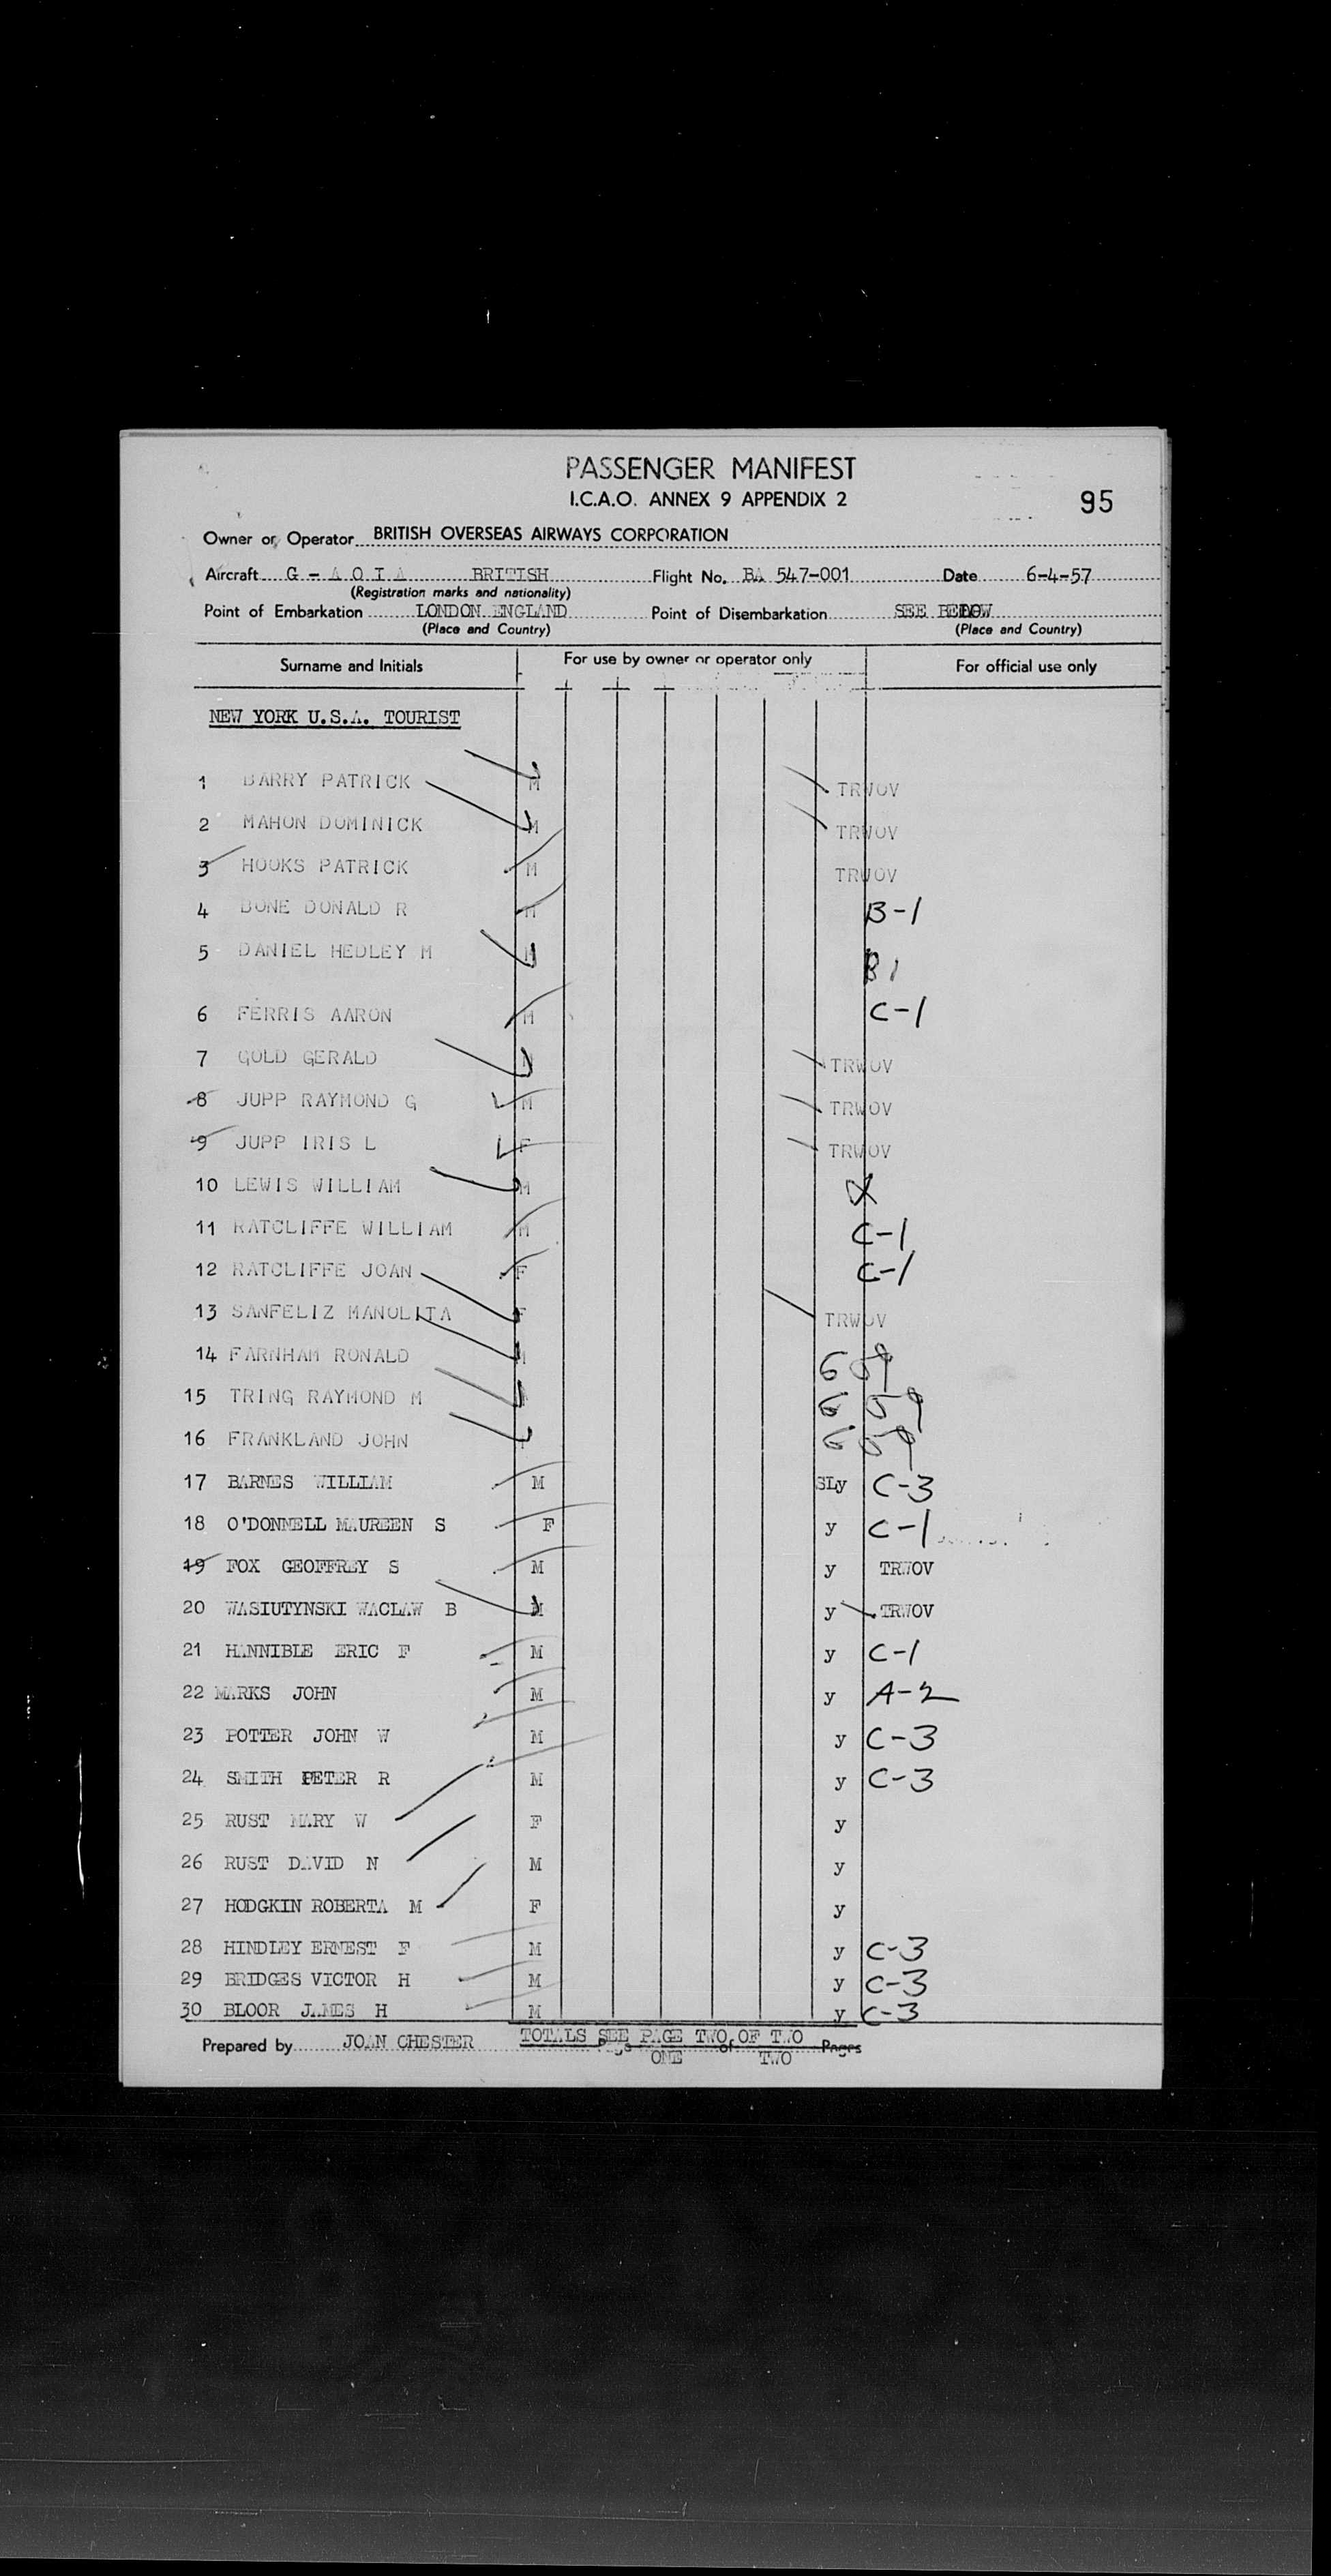 PASSENGER MANIFEST
I.C.A.O. ANNEX 9 APPENDIX 2
95
Owner or Operator BRITISH OVERSEAS AIRWAYS CORPORATION
Aircraft G - A O I A BRITISH Flight No. BA 547-001 Date 6-4-57
(Registration marks and nationality)
Point of Embarkation LONDON ENGLAND Point of Disembarkation SEE BELOW
(Place and Country) (Place and Country)
Surname and Initials For use by owner or operator only For official use only
NEW YORK U.S.A. TOURIST
1 BARRY PATRICK M TRWOV
2 MAHON DOMINICK M TRWOV
3 HOOKS PATRICK M TRWOV
4 BONE DONALD R M B-1
5 DANIEL HEDLEY M M B1
6 FERRIS AARON M C-1
7 GOLD GERALD M TRWOV
8 JUPP RAYMOND G M TRWOV
9 JUPP IRIS L F TRWOV
10 LEWIS WILLIAM M
11 RATCLIFFE WILLIAM M C-1
12 RATCLIFFE JOAN F C-1
13 SANFELIZ MANOLITA F TRWOV
14 FARNHAM RONALD M
15 TRING RAYMOND M
16 FRANKLAND JOHN
17 BARNES WILLIAM M SLy C-3
18 O'DONNELL MAUREEN S F y C-1
19 FOX GEOFFREY S M y TRWOV
20 WASIUTYNSKI WACLAW B M y TRWOV
21 HANNIBLE ERIC F M y C-1
22 MARKS JOHN M y A-2
23 POTTER JOHN W M y C-3
24 SMITH PETER R M y C-3
25 RUST MARY W F y
26 RUST DAVID N M y
27 HODGKIN ROBERTA M F y
28 HINDLEY ERNEST F M y C-3
29 BRIDGES VICTOR H M y C-3
30 BLOOR JAMES H M y C-3
TOTALS SEE PAGE TWO OF TWO
Prepared by JOAN CHESTER Page ONE of TWO Pages